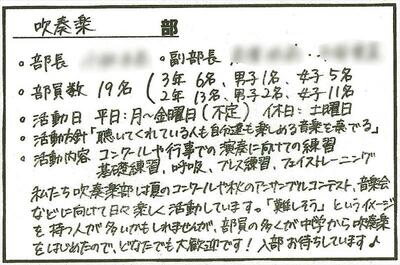 吹奏楽 部
・部長 ・副部長
・部員数 19名 ( 3年 6名、男子1名、女子5名
2年 13名、男子2名、女子11名
・活動日 平日:月～金曜日(不定) 休日:土曜日
・活動方針「聴いてくれている人も自分達も楽しめる音楽を奏でる」
・活動内容 コンクールや行事での演奏に向けての練習
基礎練習、呼吸、ブレス練習、フェイストレーニング
私たち吹奏楽部は夏のコンクールや秋のアンサンブルコンテスト、音楽会
などに向けて日々楽しく活動しています。「難しそう」というイメージ
を持つ人が多いかもしれませんが、部員の多くが中学から吹奏楽
をはじめたので、どなたでも大歓迎です!入部お待ちしています♪